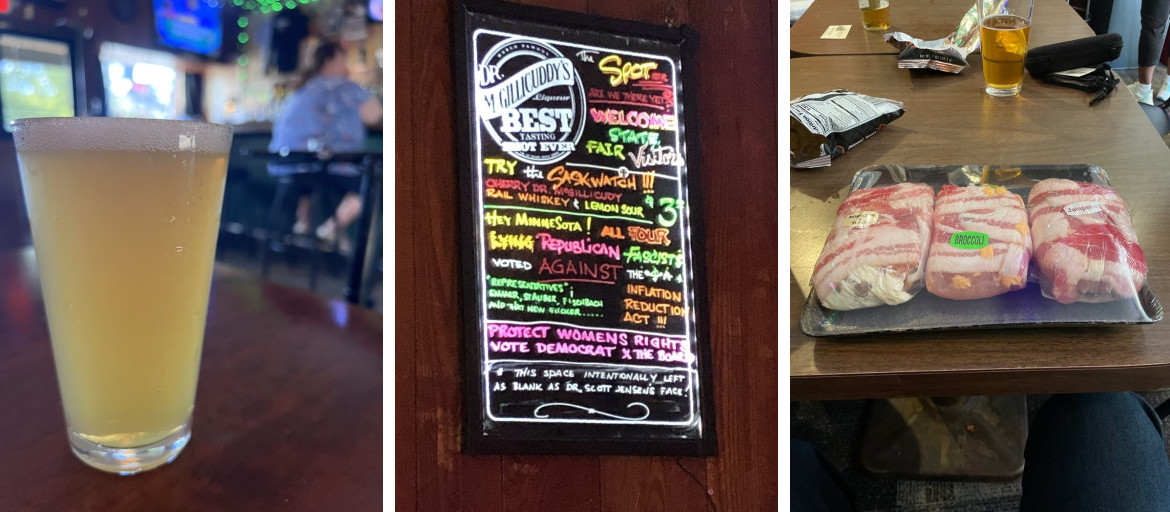 WORLD FAMOUS
DR.
MCGILLICUDDY'S
Liqueur
BEST
TASTING
SHOT EVER
The SPOT
ARE WE THERE YET?
WELCOME
STATE
FAIR Visitors
TRY the SASKWATCH !!!
CHERRY DR. MCGILLICUDY
RAIL WHISKEY & LEMON SOUR $3
HEY MINNESOTA! ALL FOUR
LYING REPUBLICAN FASCISTS
VOTED AGAINST THE
"REPRESENTATIVES":
EMMER, STAUBER, FISCHBACH
AND THAT NEW FUCKER......
INFLATION
REDUCTION
ACT !!!
PROTECT WOMENS RIGHTS
VOTE DEMOCRAT X THE BOARD
* THIS SPACE INTENTIONALLY LEFT
AS BLANK AS DR. SCOTT JENSEN'S FACE!
BROCCOLI
Jalapeño